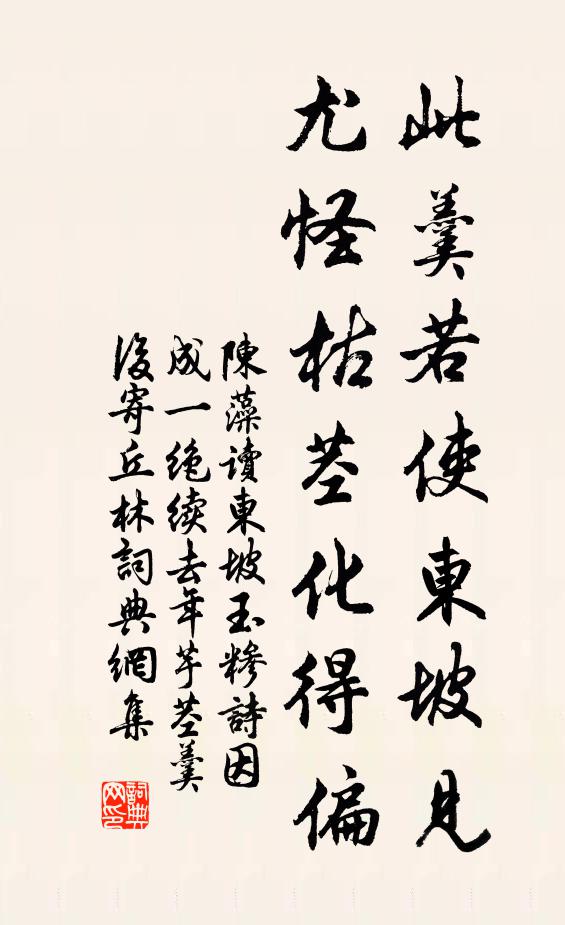 此羹若使東坡見
尤怪枯莖化得偏
陳藻讀東坡玉糝詩因
成一絶續去年芋莖羹
後寄丘林詞典網集
詞典
网印